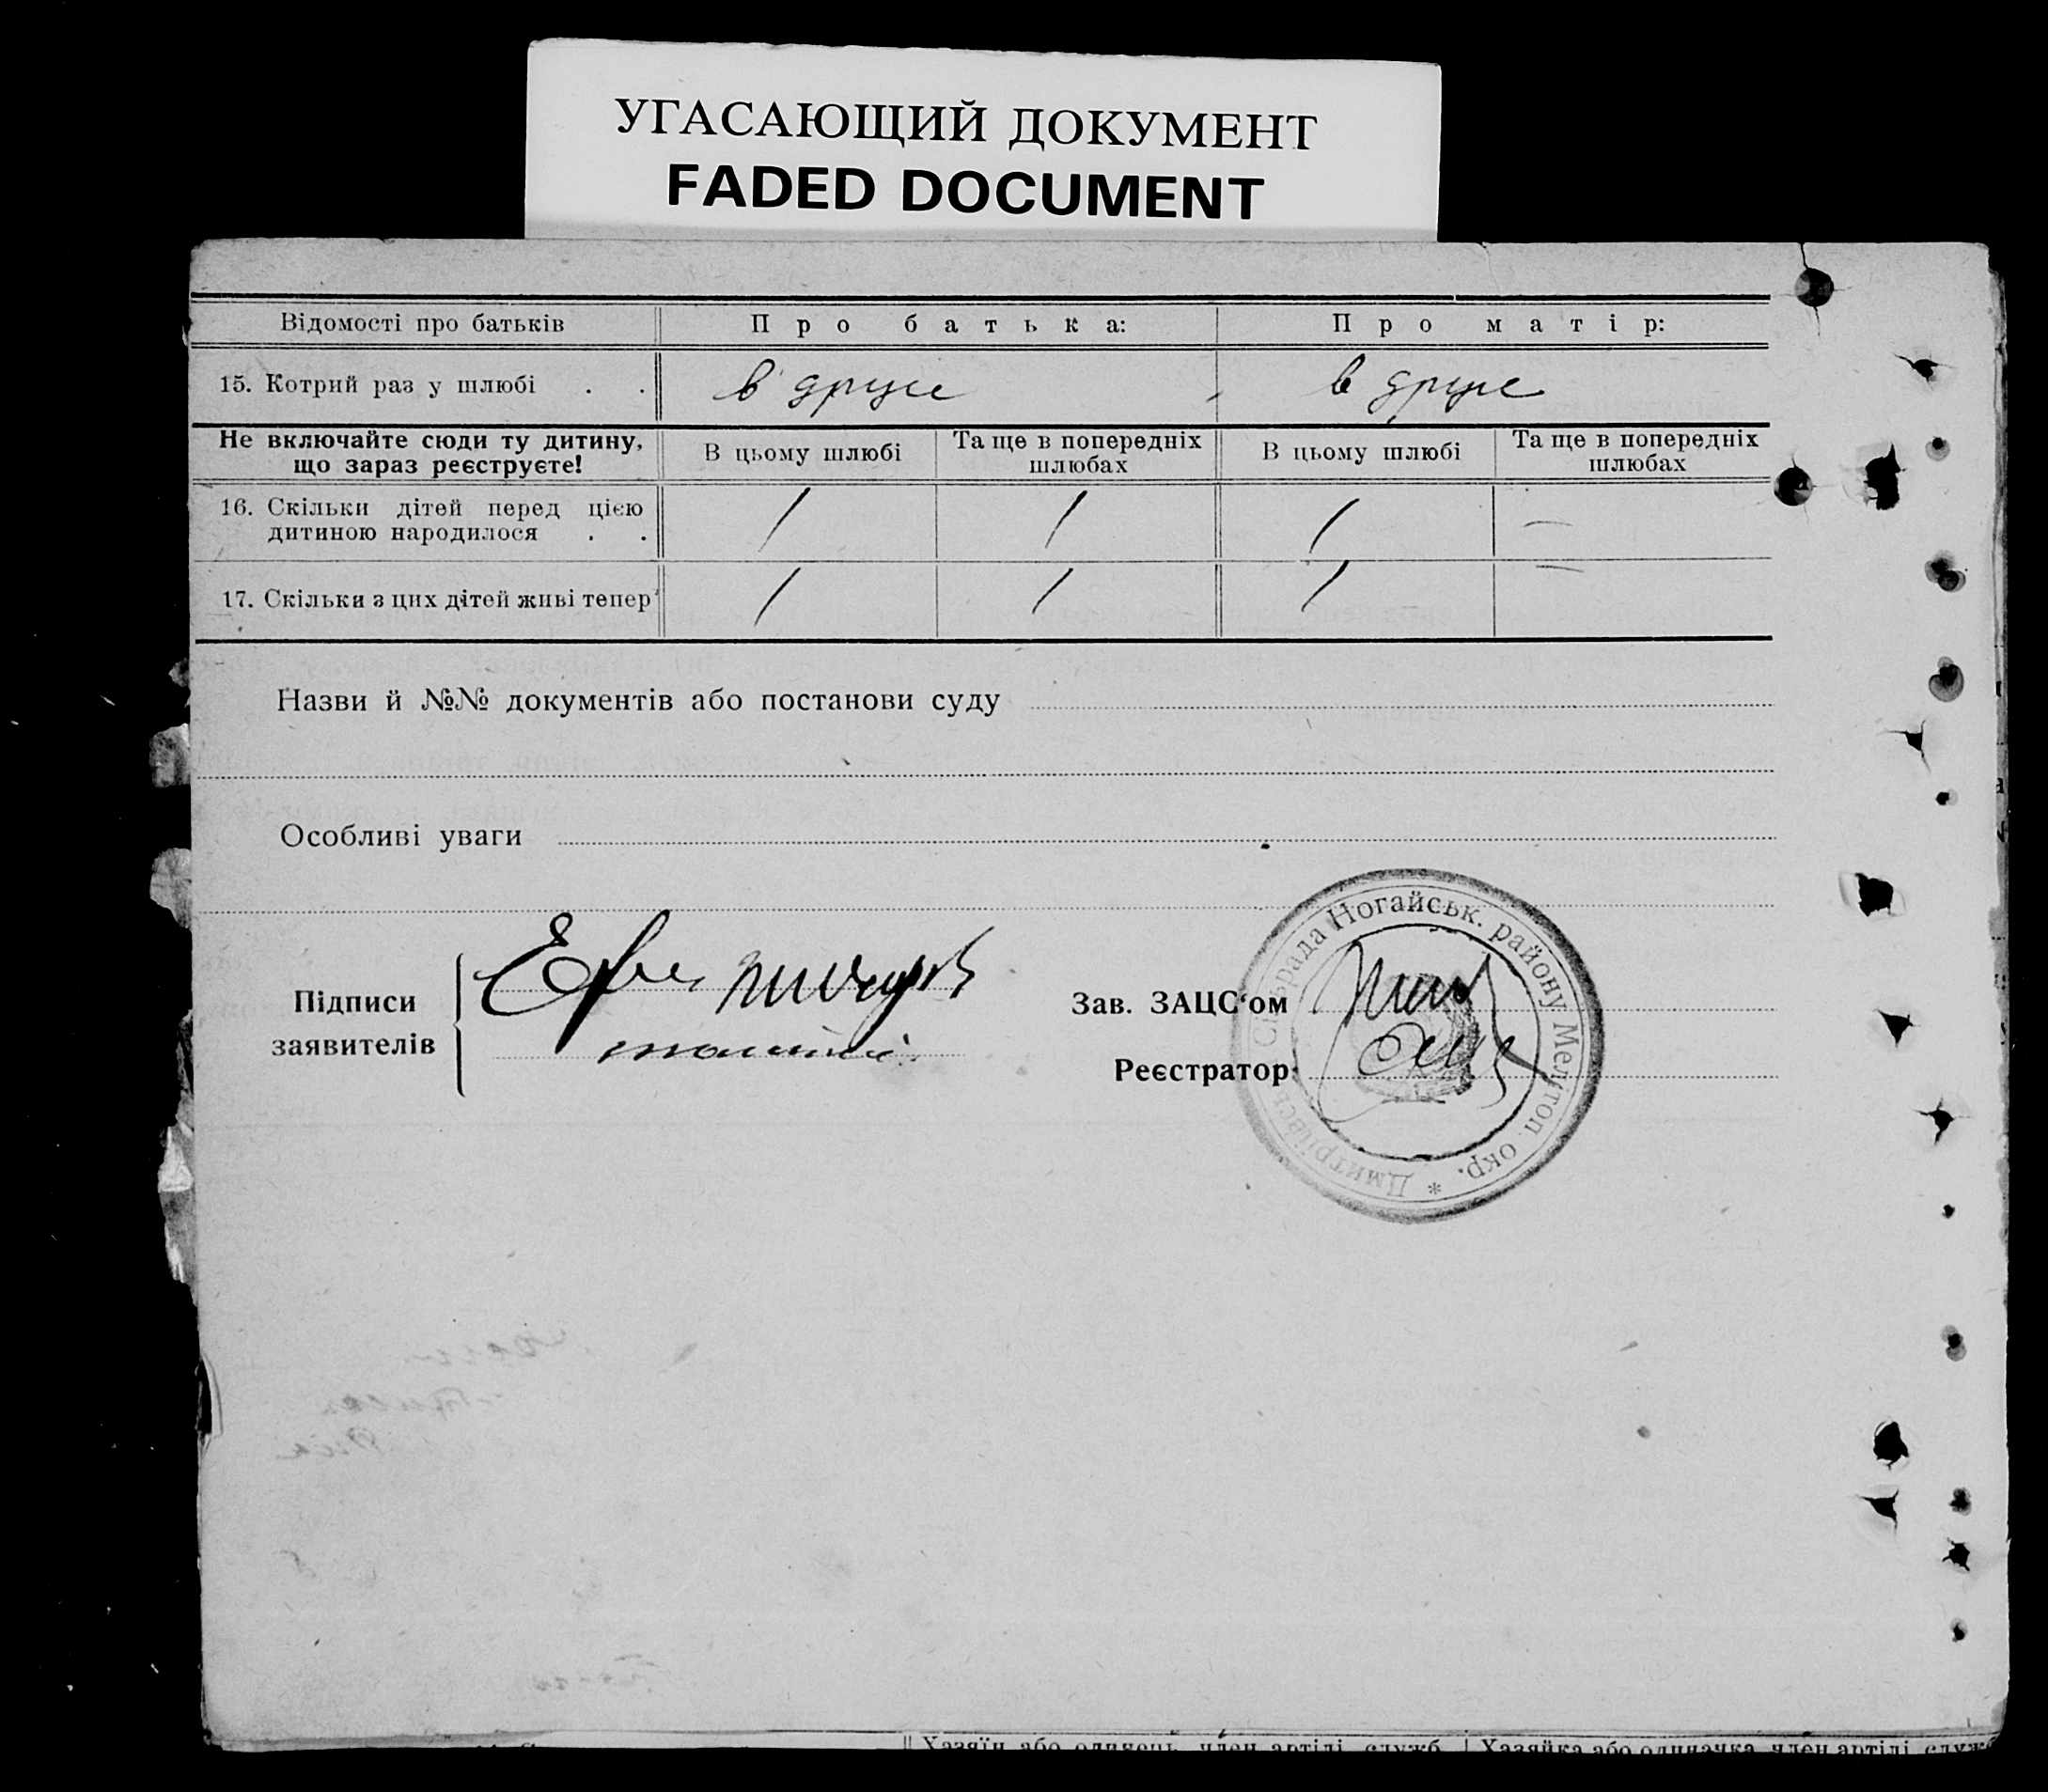 УГАСАЮЩИЙ ДОКУМЕНТ
FADED DOCUMENT
Відомості про батьків Про батька: Про матір:
15. Котрий раз у шлюбі . . в друге в друге
Не включайте сюди ту дитину, що зараз реєструєте! В цьому шлюбі Та ще в попередніх шлюбах В цьому шлюбі Та ще в попередніх шлюбах
16. Скільки дітей перед цією
дитиною народилося . . 1 1 1 —
17. Скільки з цих дітей живі тепер 1 1 1 —
Назви й №№ документів або постанови суду
Особливі уваги
Підписи
заявителів
Зав. ЗАЦС‘ом
Реєстратор
Дмитрівськ Сільрада Ногайськ. району Мелітоп. окр. *
Хазяїн або одинець, член артілі, служб. Хазяйка або одиначка, член артілі, служб